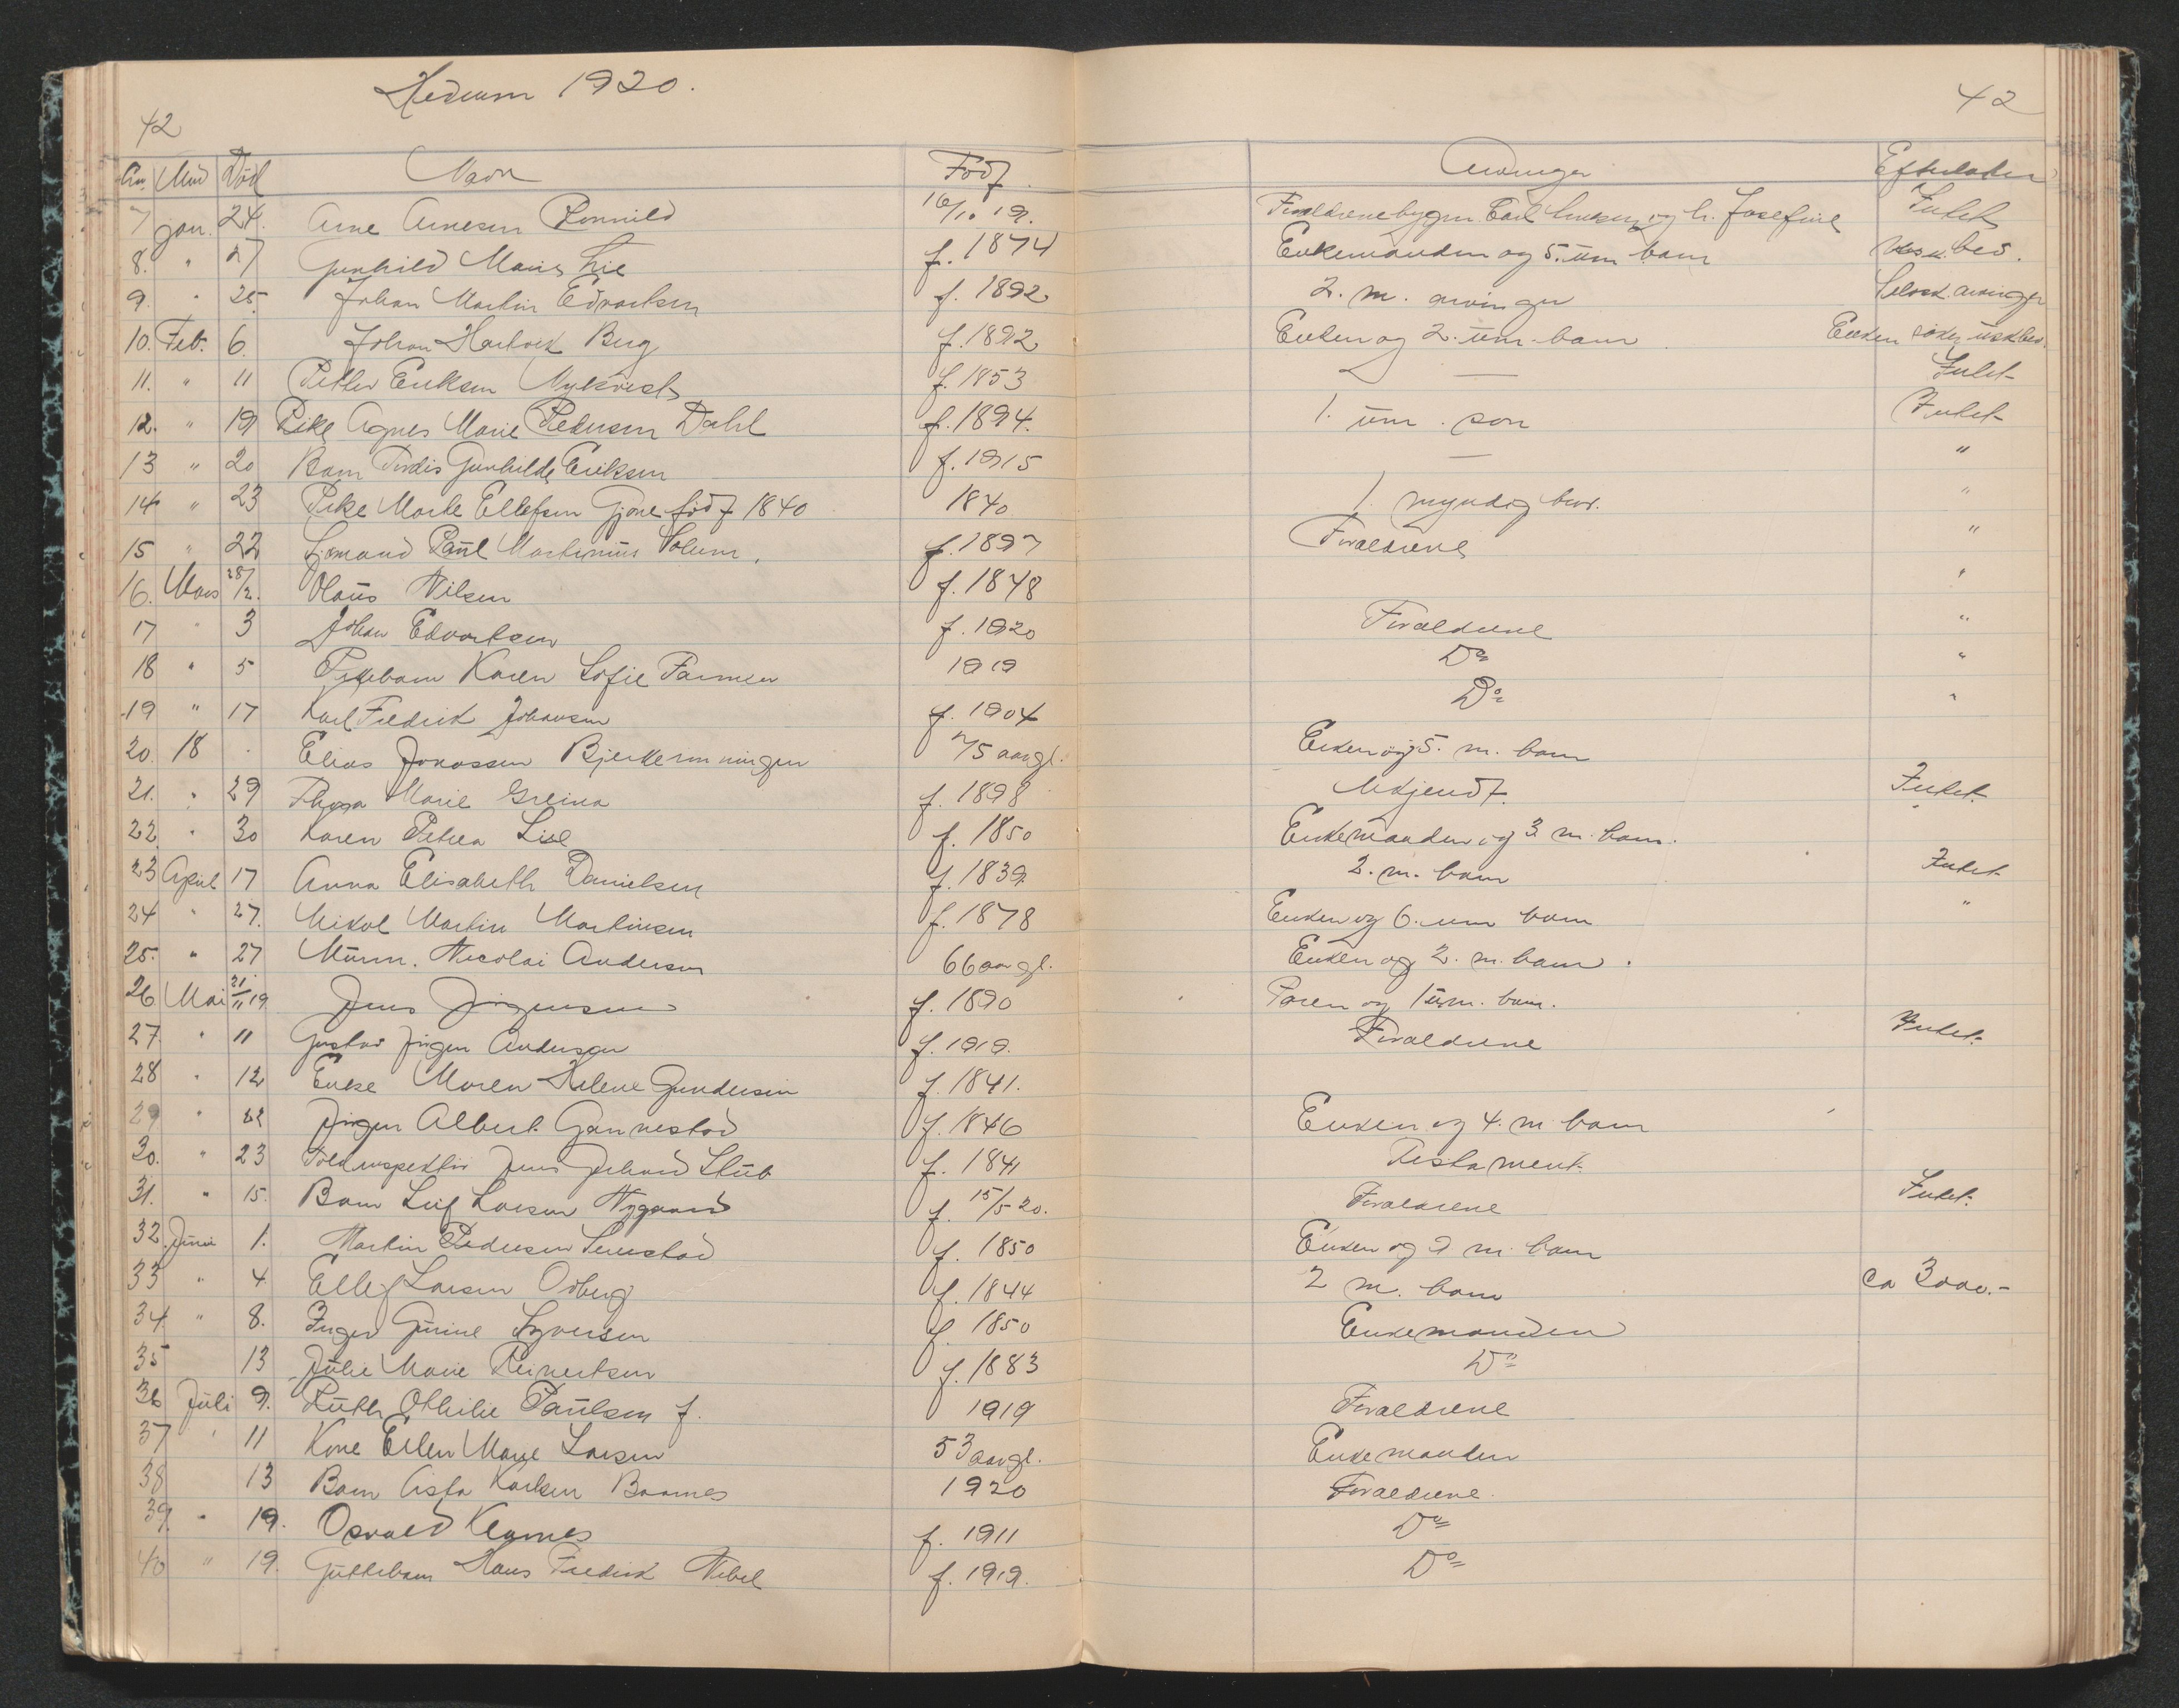 Hedrum 1920.
42
42
An. Mnd Död Navn Född. Arvinger Efterlader
7 jan. 24. Arne Arnesen Ronnild 16/10 19. Foraldrene Carl og h. Josefine Intet
8. " 27 Gunhild Marie Lie f. 1874 Enkemanden og 5. um barn usk. bev.
9. " 25 Johan Martin Edvartsen f. 1892 2. m. arvinger Selvsk. arvinger
10. Feb. 6. Johan Hartvik Berg f. 1892 Enken og 2. um. barn Enken söker uskbev.
11. " 11 Petter Eriksen Nykvist f. 1853 — Intet
12. " 19 Pike Agnes Marie Pedersen Dahl f. 1894. 1. um. son Intet
13 " 20 Barn Tordis Gunhilde Eriksen f. 1915 — "
14 " 23 Pike Marte Ellefsen Gjone född 1840 1840 1. myndig "
15 " 22 Sjömand Paul Martinius Solum. f. 1897 Foraldrene "
16. Mars 28/2. Olaus Nilsen f. 1848 "
17 " 3 Johan Edvartsen f. 1920 Foraldrene "
18 " 5 Pikebarn Karen Sofie Farmen 1919 Do "
19 " 17 Karl Fredrik Johansen f. 1904 Do "
20. 18 . Elias Jonassen 75 aargl. Enken og 5. m. barn
21. " 29 Marie Greina f. 1898 Ukjendt. Intet.
22. " 30 Karen Petrea Lie f. 1850 Enkemanden og 3 m. barn.
23 April 17 Anna Elisabeth Danielsen f. 1839 2. m. barn Intet
24 " 27. Nikol Martin Martinsen f. 1878 Enken og 6. um barn "
25. " 27 Murm. Nicolai Andersen 66 aar gl. Enken og 2. m. barn.
26 Mai 21/11 19 Jens Jörgensen f. 1890 Faren og 1 um. barn.
27. " 11 Gustav Jörgen Andersen f. 1919. Foraldrene Intet.
28 " 12 Enke Maren Helene Gundersen f. 1841.
29 " 22 Jörgen Albert Gannestad f. 1846 Enken og 4. m barn
30. " 23 Toldinspektör Jens Johan Stub f. 1841 Testament.
31. " 15. Barn Leif Larsen Nygaard f. 15/5 20. Foraldrene Intet.
32. Juni 1. Martin Pedersen f. 1850 Enken og 2 m. barn
33 " 4 Ellef Larsen Odberg f. 1844 2 m. barn ca 3000.-
34 " 8. Inger Gurine Syversen f. 1850 Enkemanden
35 13 Julie Marie Reinertsen f. 1883 Do
36 Juli 9. Ruth Othilie Paulsen f. 1919 Foraldrene
37 " 11 Kone Ellen Marie Larsen 53 aargl. Enkemanden
38 13 Barn Asta Karlsen Baanes 1920 Foraldrene.
39. " 19. Osvald f. 1911 Do
40 " 19. Guttebarn Hans Fredrik Nebel f. 1919. Do